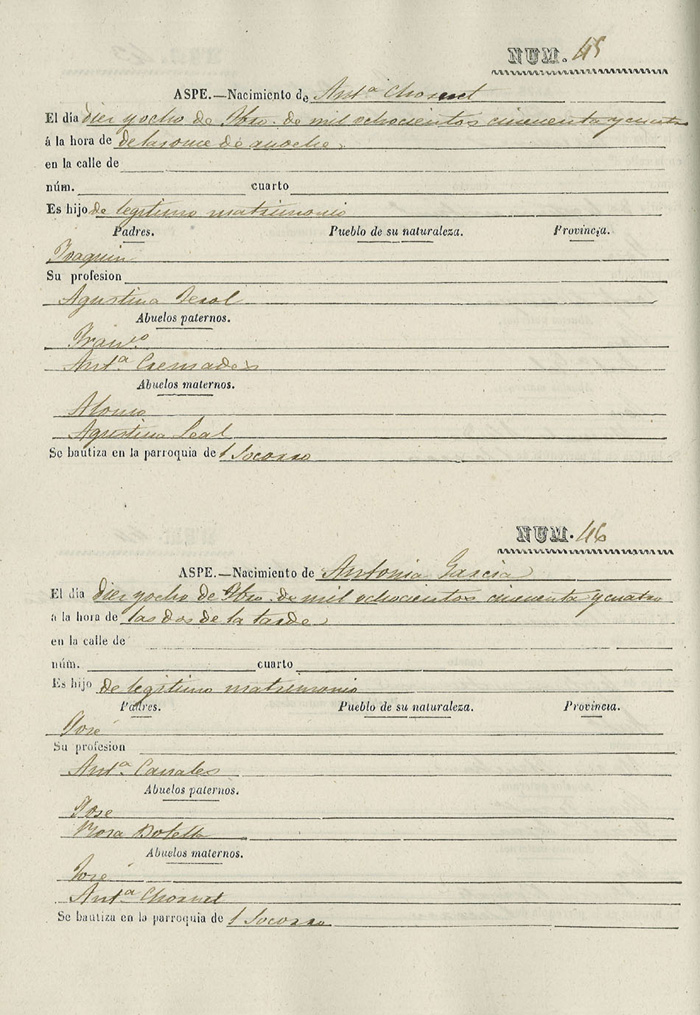 NUM. 45
ASPE.—Nacimiento de Antª Chornet
El día diez y ocho de de mil ochocientos cincuenta y cuatro
á la hora de de anoche
en la calle de
núm. cuarto
Es hijo de legitimo matrimonio
Padres. Pueblo de su naturaleza. Provincia.
Joaquin
Su profesion
Agustina
Abuelos paternos.
Franco
Antª Cremades
Abuelos maternos.
Alonso
Agustina Leal
Se bautiza en la parroquia de l Socorro
NUM. 46
ASPE.—Nacimiento de Antonia Garcia
El día diez y ocho de de mil ochocientos cincuenta y cuatro
á la hora de las dos de la tarde
en la calle de
núm. cuarto
Es hijo de legitimo matrimonio
Padres. Pueblo de su naturaleza. Provincia.
José
Su profesion
Antª. Canales
Abuelos paternos.
José
Rosa Botella
Abuelos maternos.
José
Antª Chornet
Se bautiza en la parroquia de l Socorro